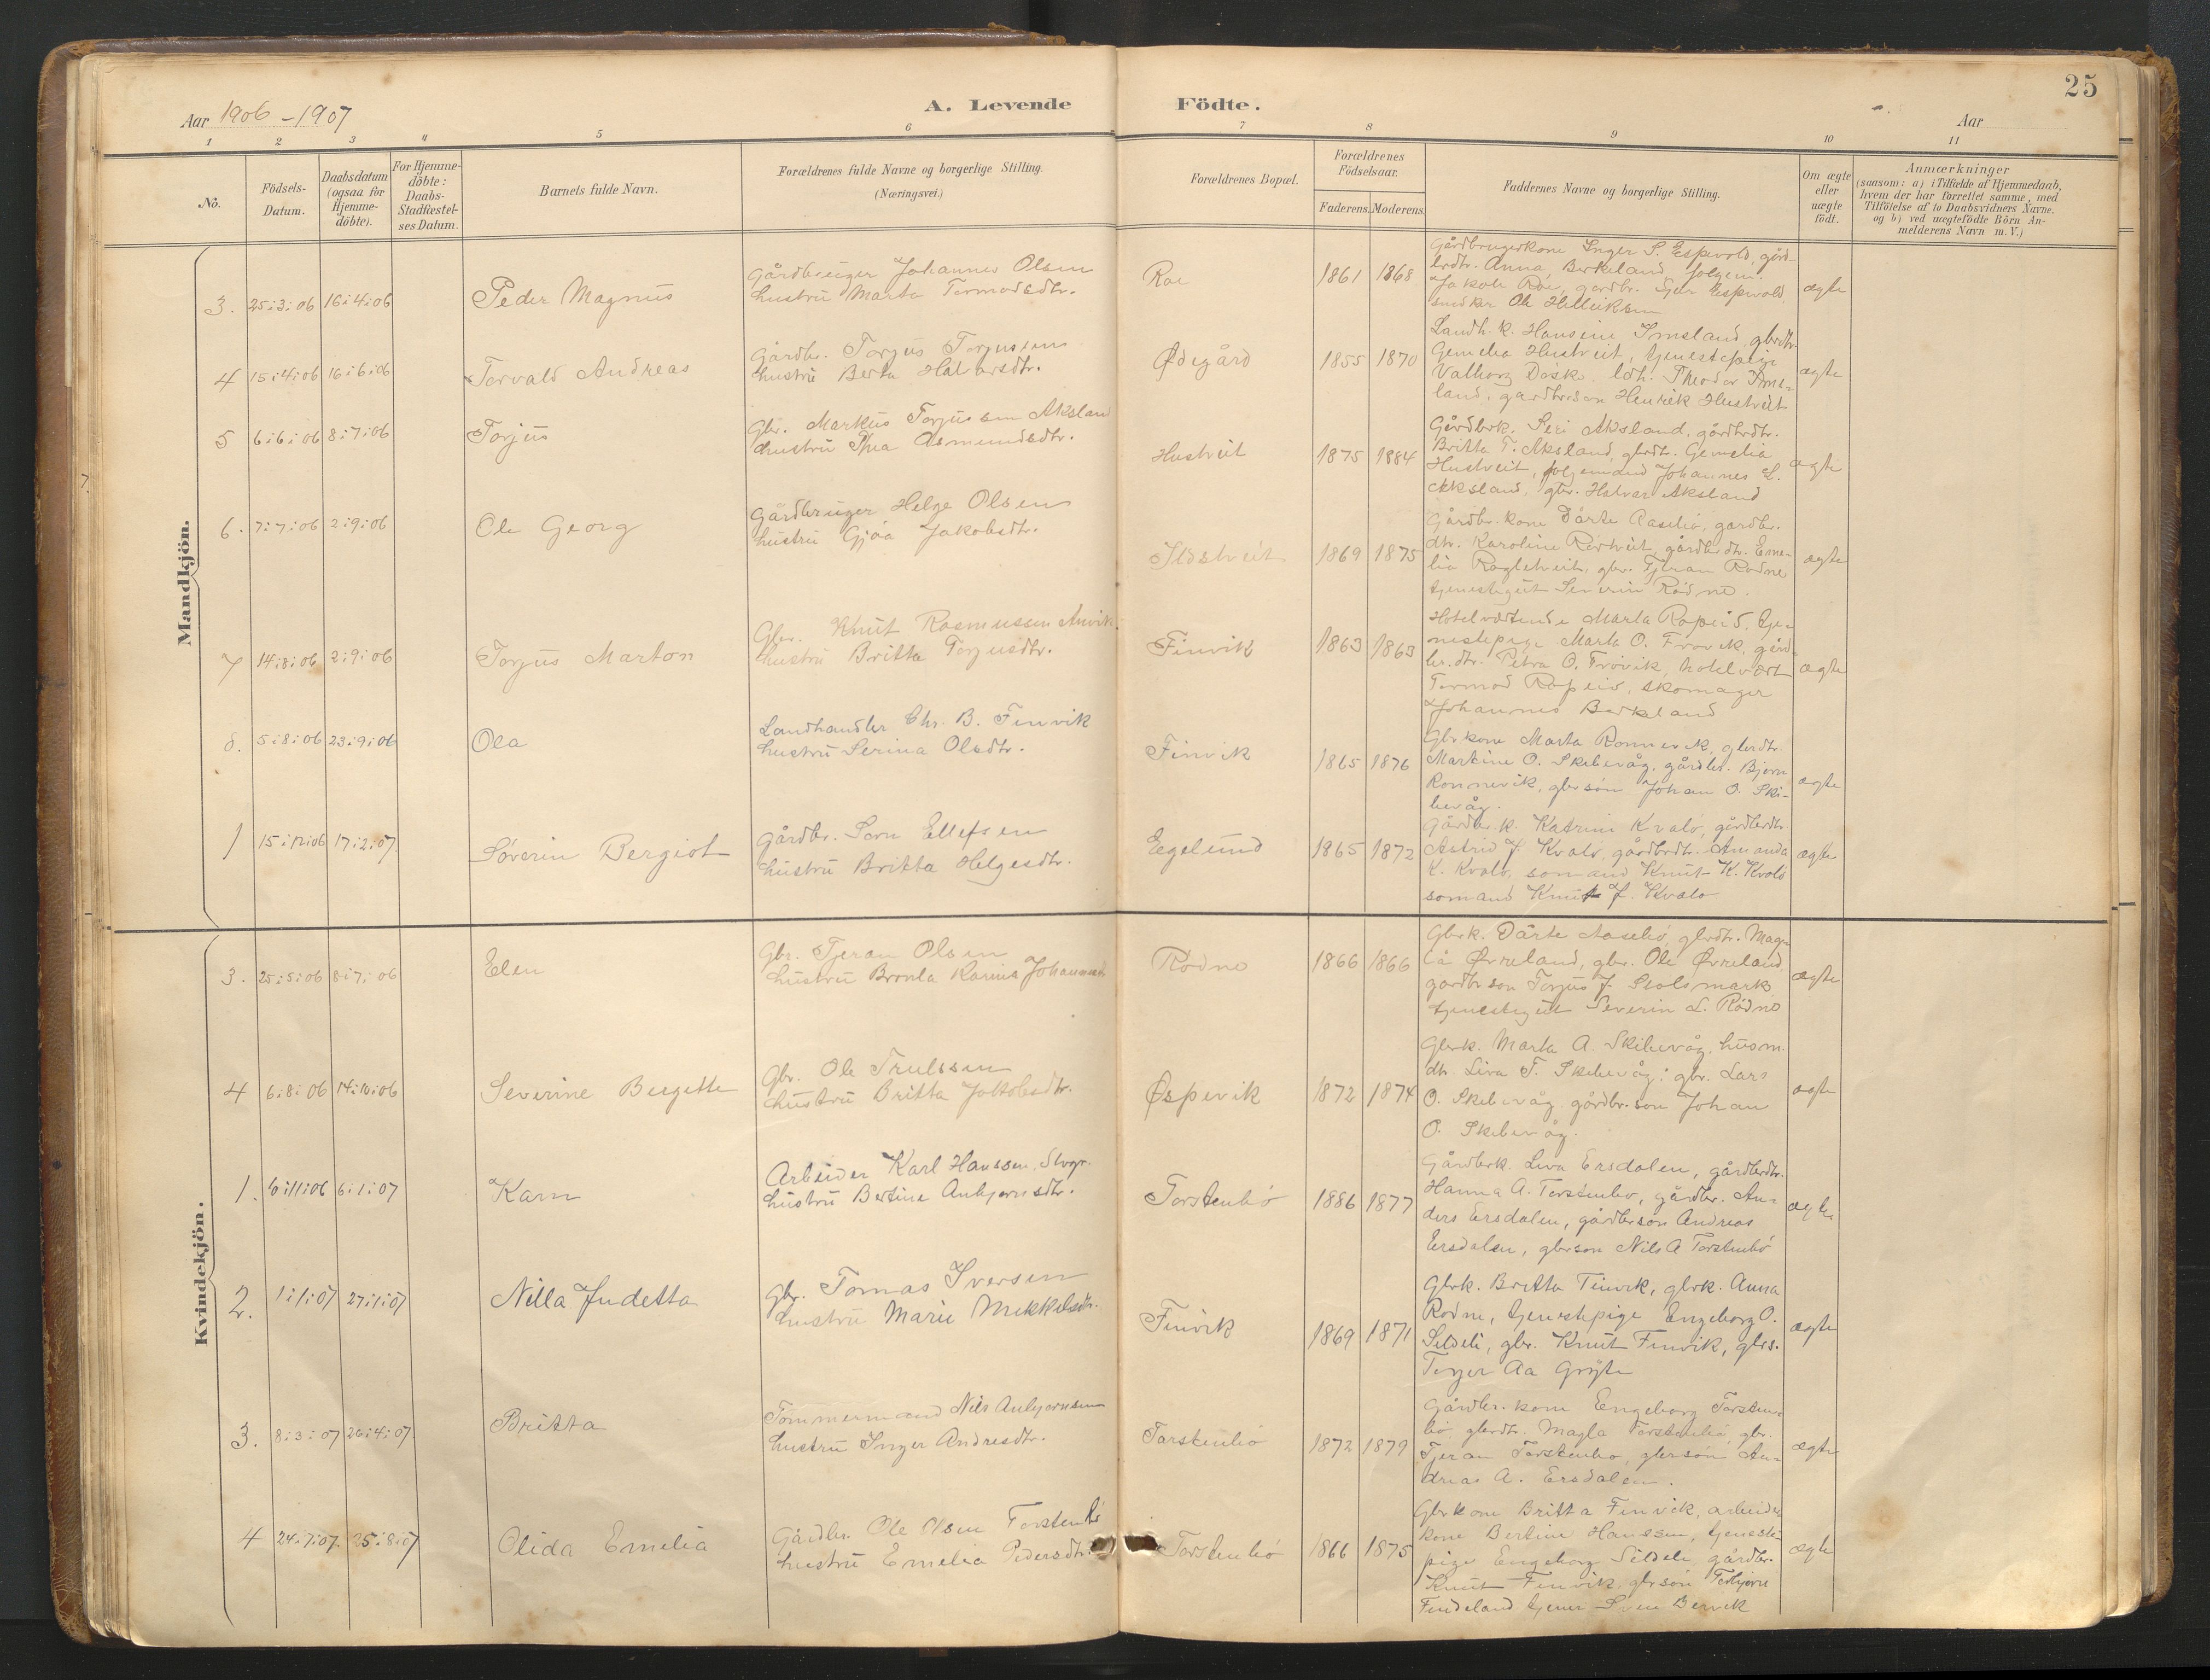 25
Aar 1906-1907
A. Levende Födte.
Aar
1 2 3 4 5 6 7 8 9 10 11
No.
Födsels-
Datum.
Daabsdatum
(ogsaa for
Hjemme-
döbte).
For Hjemme-
döbte:
Daabs-
Stadfæstel-
ses Datum.
Barnets fulde Navn.
Forældrenes fulde Navne og borgerlige Stilling.
(Næringsvei.)
Forældrenes Bopæl.
Forældrenes
Födselsaar.
Faderens. Moderens.
Faddernes Navne og borgerlige Stilling.
Om ægte
eller
uægte
födt.
Anmærkninger
(saasom: a) i Tilfælde af Hjemmedaab,
hvem der har forrettet samme, med
Tilföielse af to Daabsvidners Navne.
og b) ved uægtefödte Börn An-
melderens Navn m. V.)
Mandkjön.
3. 25:3:06 16:4:06 Peder Magnus
Gårdbruger Johannes Olsen
hustru Marta Tormodsdtr.
Roe 1861 1868
Gårdbrugerkone Inger S. Espevold, gård-
brdtr. Anna Berkeland, folgem.
Jakob Roe, gardbr. Sjur Espevold,
snedker Ole Helleiksen
ægte
4 15:4:06 16:6:06 Torvald Andreas
Gårdbr. Torjus Torjussen
hustru Berta Halvarsdtr.
Ødegård 1855 1870
Landh. k. Hansine Imsland, gbrdtr.
Gemelia Hustveit, tjenestepige
Valborg Doske, ldh. Theodor Ims-
land, gardbrsøn Henrik Hustveit
ægte
5 6:6:06 8:7:06 Torjus
Gbr. Markus Torjussen Aksland
hustru Thea Asmundsdtr.
Hustveit 1875 1884
Gårdbrk. Siri Aksland, gårdbrdtr.
Britta T. Aksland, gbrdtr. Gemelia
Hustveit, folgemand Johannes L.
Aksland, gbr. Halvar Aksland
ægte
6. 7:7:06 2:9:06 Ole Georg
Gårdbruger Helge Olsen
hustru Gjøa Jakobsdtr.
Ilstveit 1869 1875
Gårdbr. kone Dårte Aasebø, gardbr.
dtr. Karoline Rørtveit, gårdbrdtr. Eme-
lia Ragletveit, gbr. Tjeran Rødne
tjenestegut Severin Rødne.
ægte
7 14:8:06 2:9:06 Torjus Marton
Gbr. Knut Rasmussen Anvik
hustru Britta Torjusdtr.
Finvik 1863 1863
Hotelværtinde Marta Ropeid, tje-
nestepige Marta O. Frovik, gård-
br.dtr. Petra O. Frøvik, hotelvært
Tormod Ropeid, skomager
Johannes Berkeland
ægte
8. 5:8:06 23:9:06 Ola
Landhandler Chr. B. Finvik
hustru Serina Olsdtr.
Finvik 1865 1876
Gbrkone Marta Ronnevik, gbrdtr.
Martine O. Skibevåg, gårdbr. Bjørn
Ronnevik, gbrsøn Johan O. Ski-
bevåg.
ægte
1 15:12:06 17:2:07. Søverin Bergiot
Gårdbr. Sørn Ellefsen
hustru Britta Helgesdtr.
Eegelund 1865 1872
Gårdbr. k. Katrine Kvalø, gårdbrdtr.
Astrid J. Kvalø, gårdbrdtr. Amanda
K. Kvalø, sømand Knut K. Kvalø
sømand Knut J. Kvalø
ægte
Kvindekjön.
3. 25:5:06 8:7:06 Elen
Gbr. Tjeran Olsen
hustru Bronla Karina Johannesdtr
Rødne 1866 1866
Gbrk. Dårte Aasebø, gbrdtr. Mag-
la Øvreland, gbr. Ole Øvreland
gardbrson Torjus J. Stolsmark
tjenestegut Severin L. Rødne
ægte
4 6:8:06 14:10:06 Severine Bergette
Gbr. Ole Trulssen
hustru Britta Jakobsdtr.
Øspevik 1872 1874
Gbrk. Marta A. Skibevåg, husm.
dtr. Liva T. Skibevåg; gbr. Lars
O. Skibevåg, gårdbr.son Johan
O. Skibevåg.
ægte
1. 6:11:06 6:1:07 Karn
Arbeider Karl Hanssen,
hustru Bertine Anbjørnsdtr.
Torstenbø 1886 1877
Gårdbrk. Liva Ersdalen, gårdbrdtr.
Hanna A. Torstenbø, gårdbr. An-
ders Ersdalen, gårdbrson Andreas
Ersdalen, gbrson Nils A Torstenbø
ægte
2. 1:1:07 27:1:07 Nilla Judetta
gbr. Tomas Iversen
hustru Marie Mikkelsdtr.
Finvik 1869 1871
Gbrk. Britta Finvik, gbrk. Anna
Rødne, tjenestepige Engeborg O.
Seldeli, gbr. Knut Finvik, gbrs.
Torger Aa Grøjte
ægte
3. 8:3:07 26:4:07. Britta
Tømmermand Nils Anbjørnsen
hustru Inger Andresdtr.
Torstenbø 1872 1879
Gårdbr. kone Engeborg Torsten-
bø, gbrdtr. Magla Torstenbø, gbr.
Tjeran Torstenbø, gbrsøn An-
dreas A. Ersdalen.
ægte
4 24:7:07. 25:8:07 Olida Emelia
Gårdbr. Ole Olsen Torstenbø
hustru Emelia Pedersdtr.
Torstenbø 1866 1875
Gbrkone Britta Finvik, arbeider
kone Bertine Hanssen, tjeneste
pige Engeborg Seldeli, gårdbr.
Knut Finvik, gbrsøn Torbjørn
Findeland tjener Sven Bervik
ægte